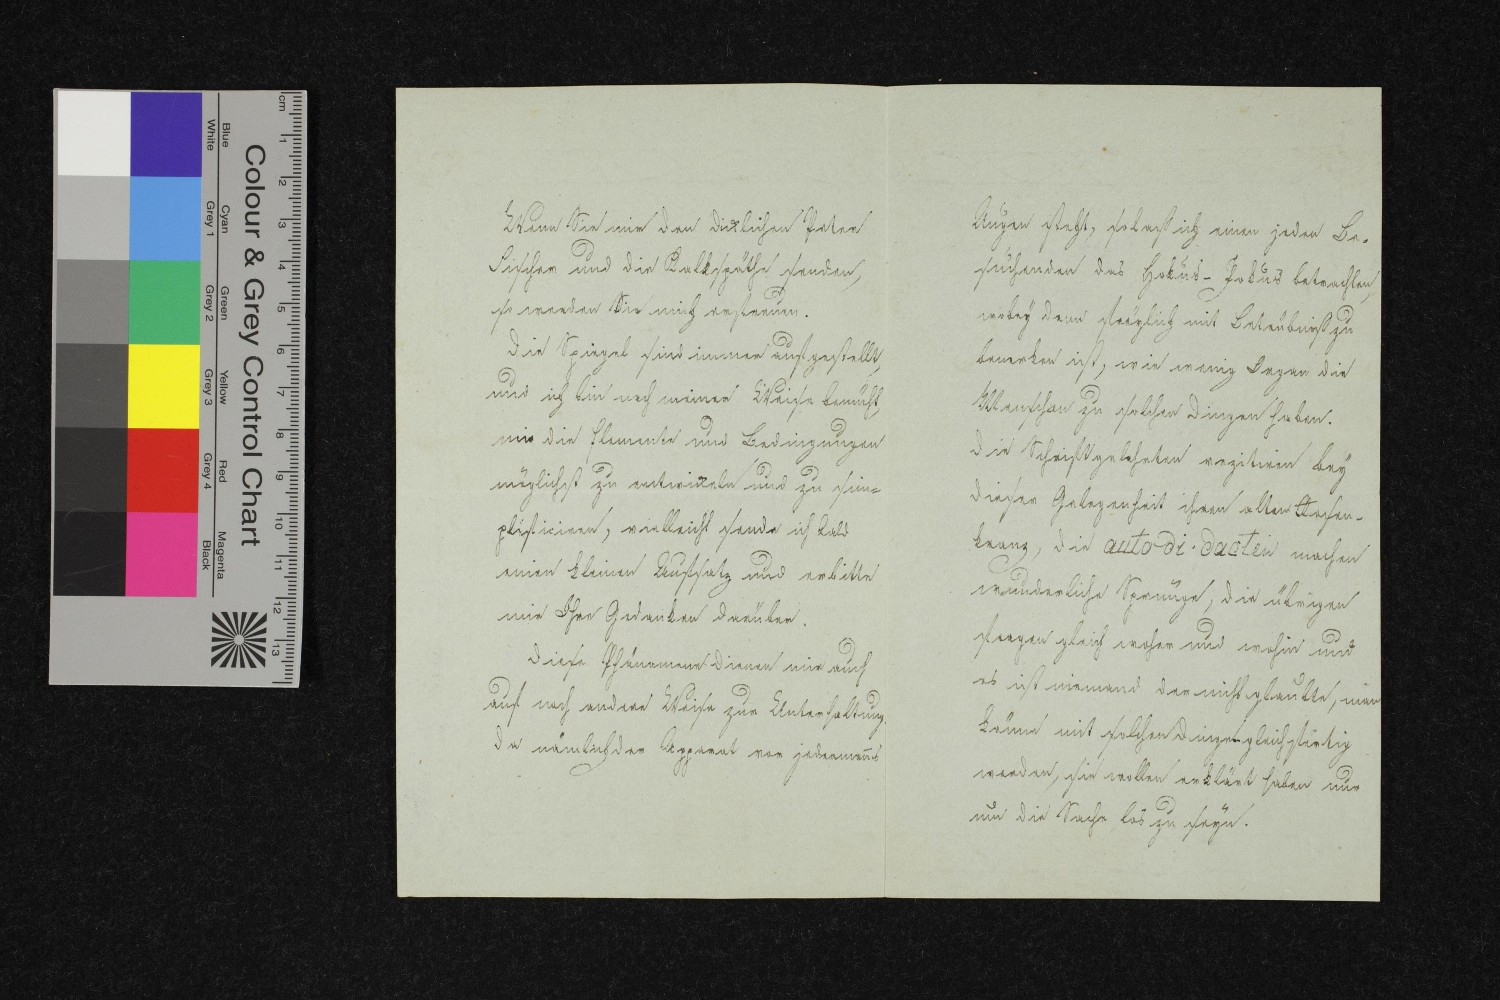 Wenn Sie mir den dicklichen Pater
Fischer und die Kalkspäthe senden,
so werden Sie mich erfreuen.
Die Spiegel sind immer aufgestellt,
und ich bin nach meiner Weise bemüht,
mir die Elemente und Bedingungen
möglichst zu entwickeln und zu sim-
plificiren, vielleicht sende ich bald
einen kleinen Aufsatz und erbitte
mir Ihre Gedanken darüber.
Diese Phänomene dienen mir auch
auf noch andere Weise zur Unterhaltung.
Da nämlich der Apparat vor jedermans
Augen steht, so lass ich einen jeden Be-
suchenden das Hokus-Pokus betrachten,
wobey denn freylich mit Betrübniß zu
bemerken ist, wie wenig Organ die
Menschen zu solchen Dingen haben.
Die Schriftgelehrten rezitiren bey
dieser Gelegenheit ihren alten Rosen-
kranz, die auto-di-dacten machen
wunderliche Sprünge, die übrigen
fragen gleich woher und wohin und
es ist niemand der nicht glaubte, man
könne mit solchen Dingen gleich fertig
werden, sie wollen erklärt haben nur
um die Sache los zu seyn.
Colour & Grey Control Chart
Blue Cyan Green Yellow Red Magenta
White Grey 1 Grey 2 Grey 3 Grey 4 Black
cm 1 2 3 4 5 6 7 8 9 10 11 12 13